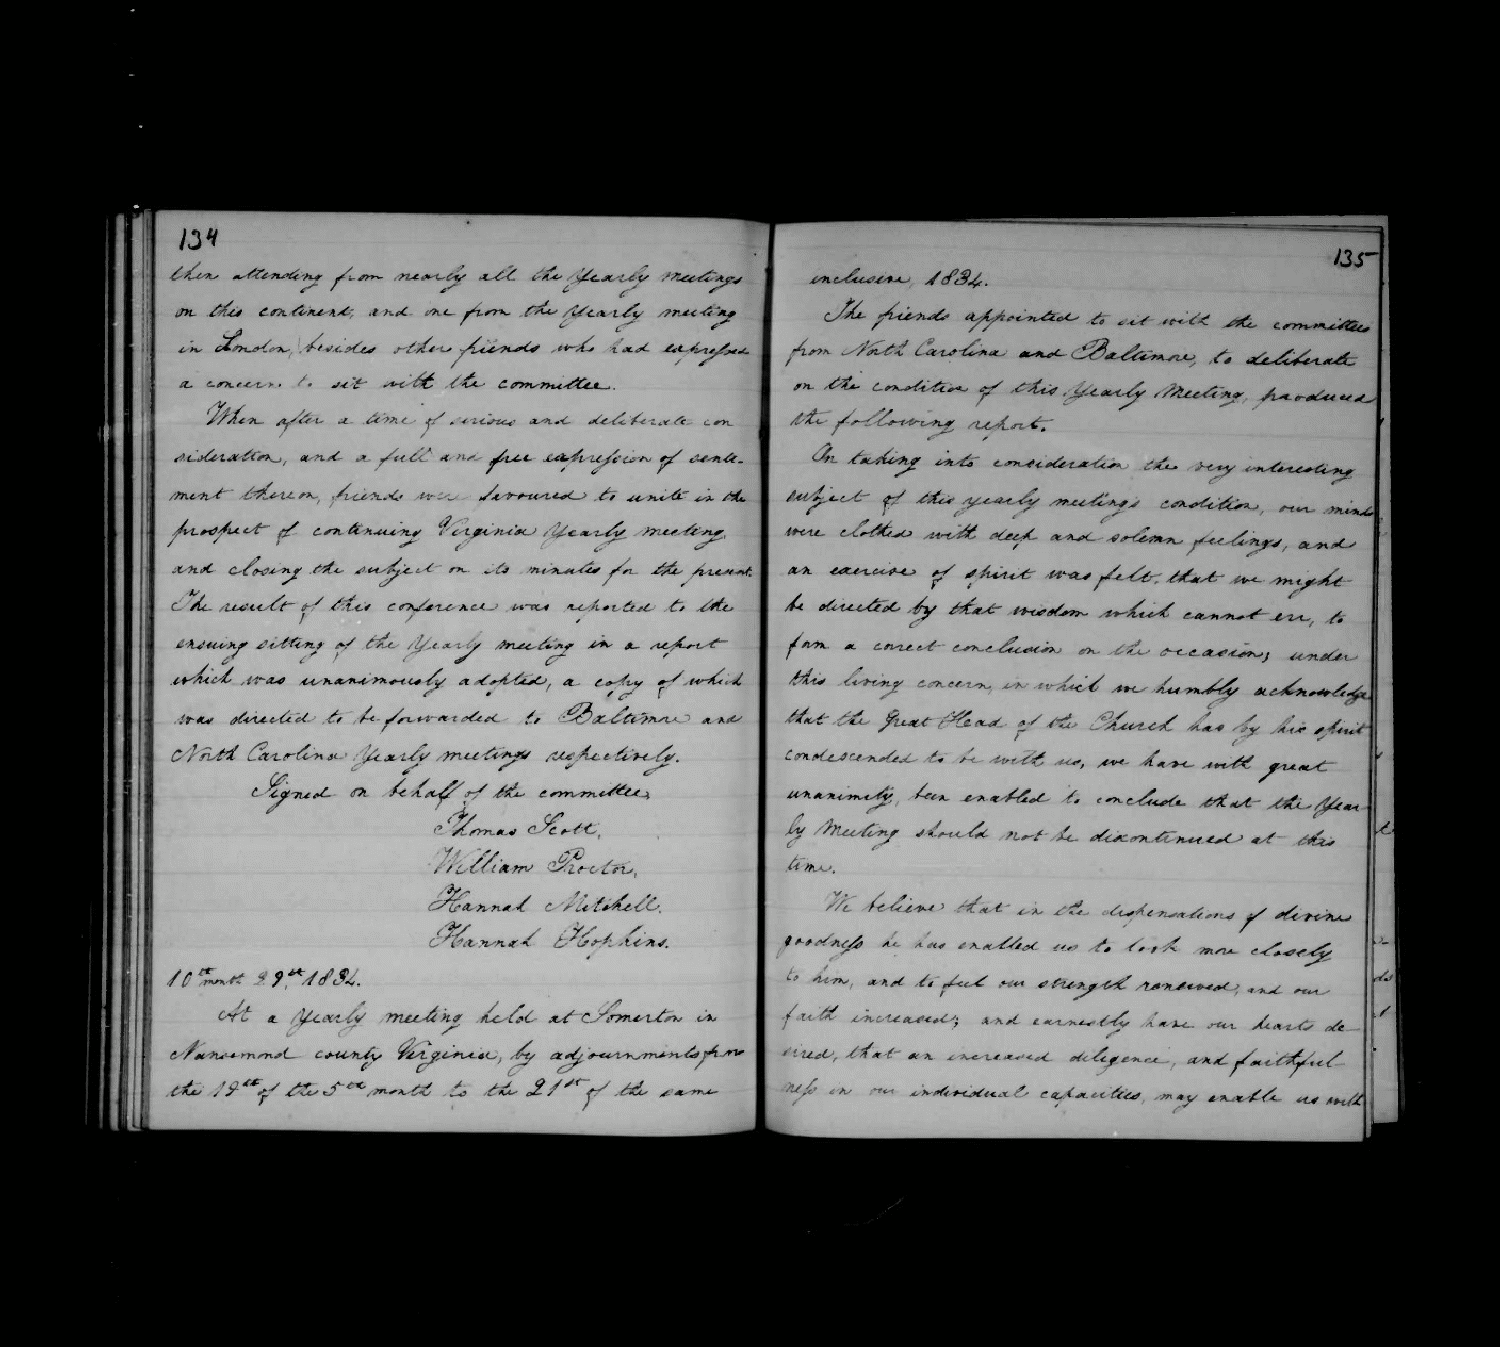 134
then attending from nearly all the Yearly meetings
on this continent, and one from the Yearly meeting
in London, besides other friends who had expressed
a concern to sit with the committee.
When after a time of serious and deliberate con
sideration, and a full and free expression of senti-
ment thereon, friends were favoured to unite in the
prospect of continuing Virginia Yearly meeting,
and closing the subject on its minutes for the present.
The result of this conference was reported to the
ensuing sitting of the Yearly meeting in a report
which was unanimously adopted, a copy of which
was directed to be forwarded to Baltimore and
North Carolina Yearly meetings respectively.
Signed on behalf of the committee,
Thomas Scott,
William Proctor,
Hannah Mitchell,
Hannah Hopkins.
10th month 29th 1834.
At a Yearly meeting held at Somerton in
Nansemond county Virginia, by adjournments from
the 19th of the 5th month to the 21st of the same
135
inclusive, 1834.
The friends appointed to sit with the committees
from North Carolina and Baltimore, to deliberate
on the condition of this Yearly Meeting, produced
the following report.
On taking into consideration the very interesting
subject of this yearly meeting's condition, our minds
were clothed with deep and solemn feelings, and
an exercise of spirit was felt, that we might
be directed by that wisdom which cannot err, to
form a correct conclusion on the occasion; under
this living concern, in which we humbly acknowledge
that the Great Head of the Church has by his spirit
condescended to be with us, we have with great
unanimity, been enabled to conclude that the Year
ly Meeting should not be discontinued at this
time.
We believe that in the dispensations of divine
goodness he has enabled us to look more closely
to him, and to feel our strength renewed, and our
faith increased; and earnestly have our hearts de-
sired, that an increased diligence, and faithful-
ness in our individual capacities, may enable us with